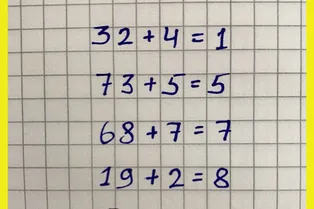 32+4=1
73+5=5
68+7=7
19+2=8